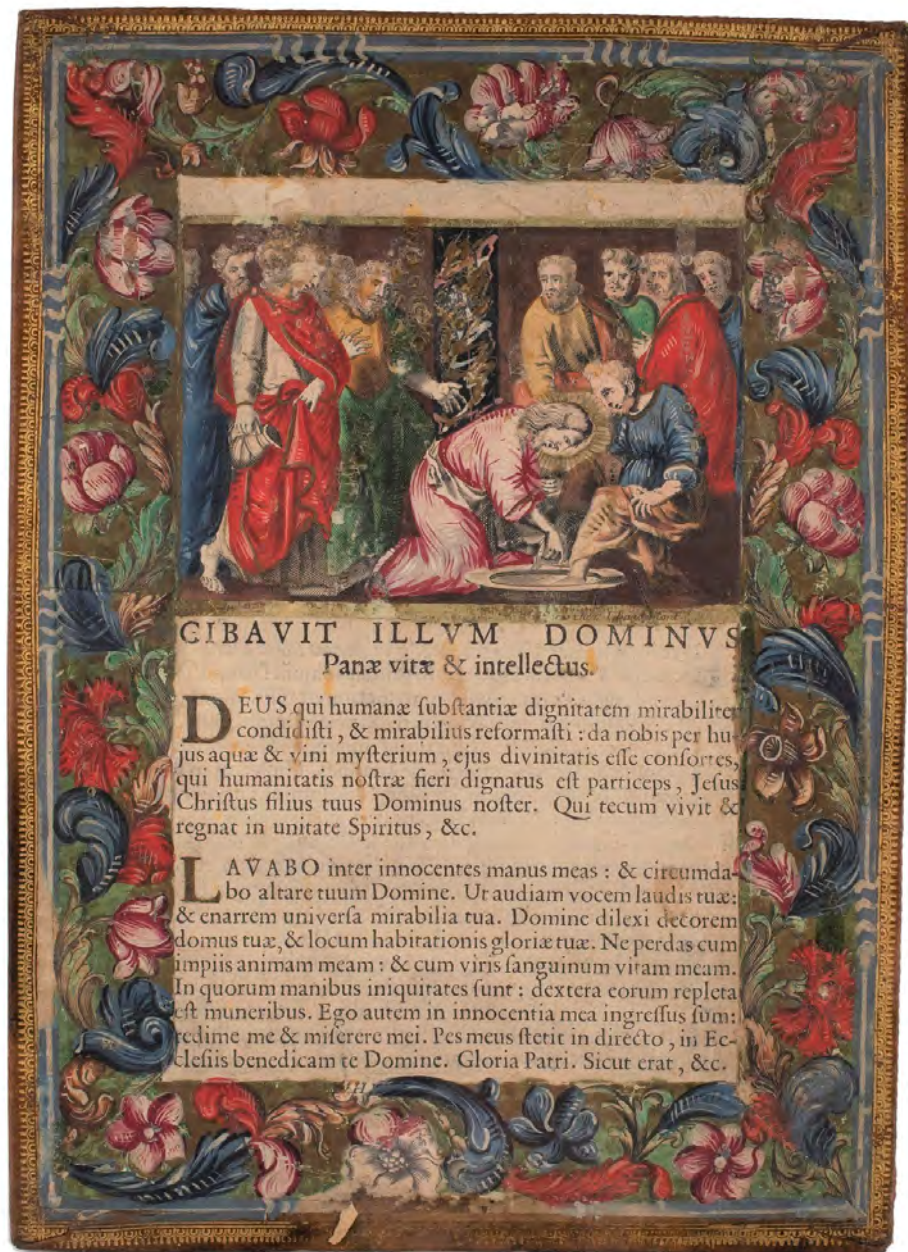 CIBAVIT ILLVM DOMINVS
Panæ vitæ & intellectus.
DEUS qui humanæ ſubſtantiæ dignitatem mirabiliter
condidiſti, & mirabilius reformaſti : da nobis per hu-
jus aquæ & vini myſterium, ejus divinitatis eſſe conſortes,
qui humanitatis noſtræ fieri dignatus eſt particeps, Jeſus
Chriſtus filius tuus Dominus noſter. Qui tecum vivit &
regnat in unitate Spiritus, &c.
LAVABO inter innocentes manus meas : & circumda-
bo altare tuum Domine. Ut audiam vocem laudis tuæ:
& enarrem univerſa mirabilia tua. Domine dilexi decorem
domus tuæ, & locum habitationis gloriæ tuæ. Ne perdas cum
impiis animam meam : & cum viris ſanguinum vitam meam.
In quorum manibus iniquitates ſunt : dextera eorum repleta
eſt muneribus. Ego autem in innocentia mea ingreſſus ſum:
redime me & miſerere mei. Pes meus ſtetit in directo, in Ec-
cleſiis benedicam te Domine. Gloria Patri. Sicut erat, &c.